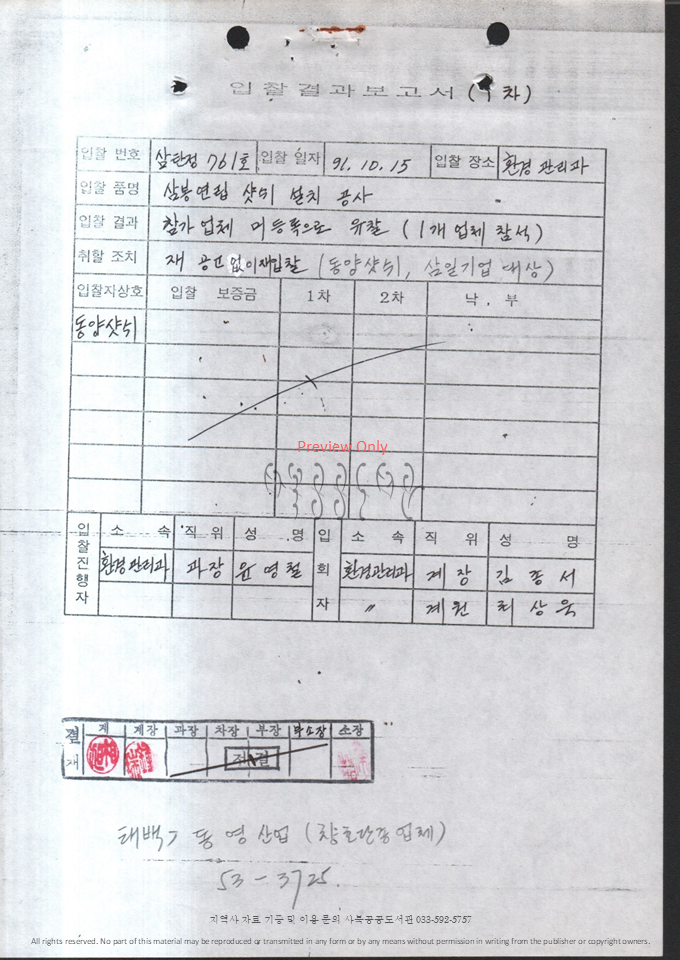 입찰결과보고서 (1차)
입찰 번호 삼탄정 761호 입찰 일자 91. 10. 15 입찰 장소 환경관리과
입찰 품명 삼봉연립 샷시 설치 공사
입찰 결과 참가업체 미등록으로 유찰 (1개 업체 참석)
취할 조치 재 공고 없이 재입찰 (동양샷시, 삼일기업 대상)
입찰자상호 입찰 보증금 1차 2차 낙 . 부
동양샷시
Preview Only
입찰진행자 소속 직위 성명 입회자 소속 직위 성명
환경관리과 과장 윤영철 환경관리과 계장 김종서
〃 계원 최상욱
결재 계 계장 과장 차장 부장 부소장 소장
전결
태백 동영산업
53-3725.
지역사 자료 기증 및 이용 문의 사북공공도서관 033-592-5757
All rights reserved. No part of this material may be reproduced or transmitted in any form or by any means without permission in writing from the publisher or copyright owners.